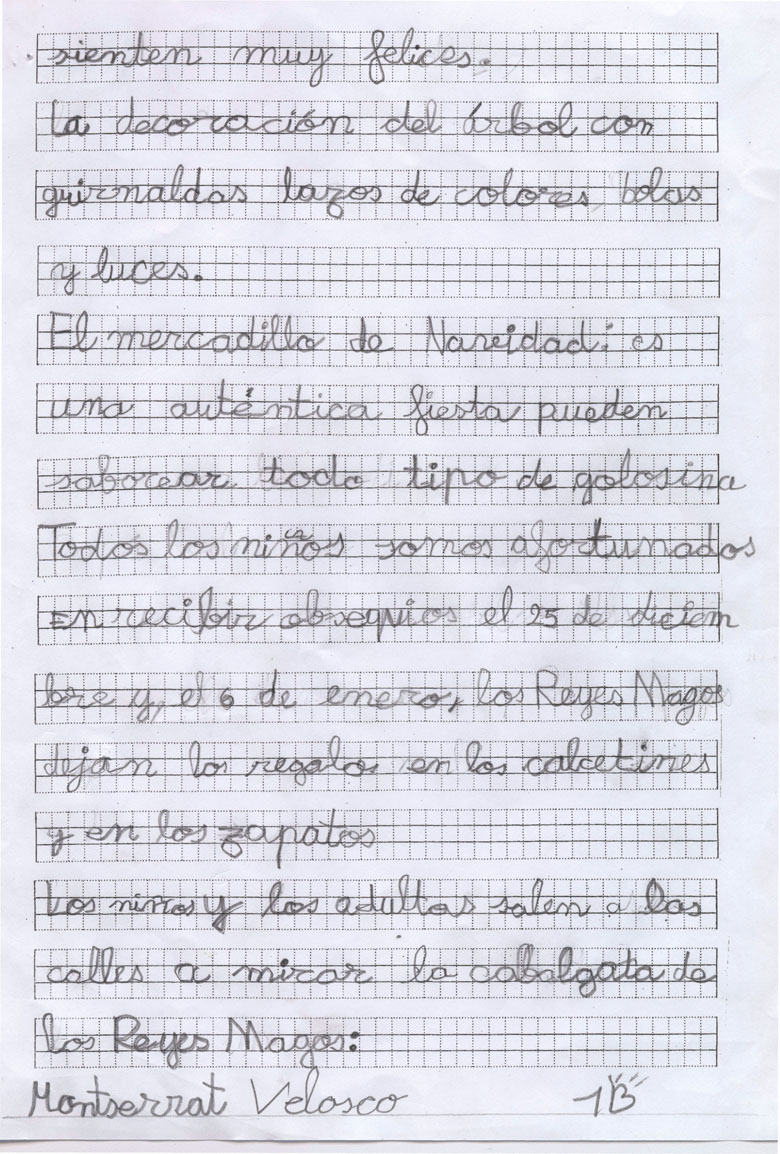 sienten muy felices.
La decoración del árbol con
guirnaldas lazos de colores bolas
y luces.
El mercadillo de Naveidad: es
una auténtica fiesta pueden
saborear todo tipo de golosina
Todos los niños somos afortunados
En recibir obsequios el 25 de diciem
bre y, el 6 de enero, los Reyes Magos
dejan los regalos en los calcetines
y en los zapatos
Los niños y los adultos salen a las
calles a mirar la cabalgata de
los Reyes Magos:
Montserrat Velasco 1"B"